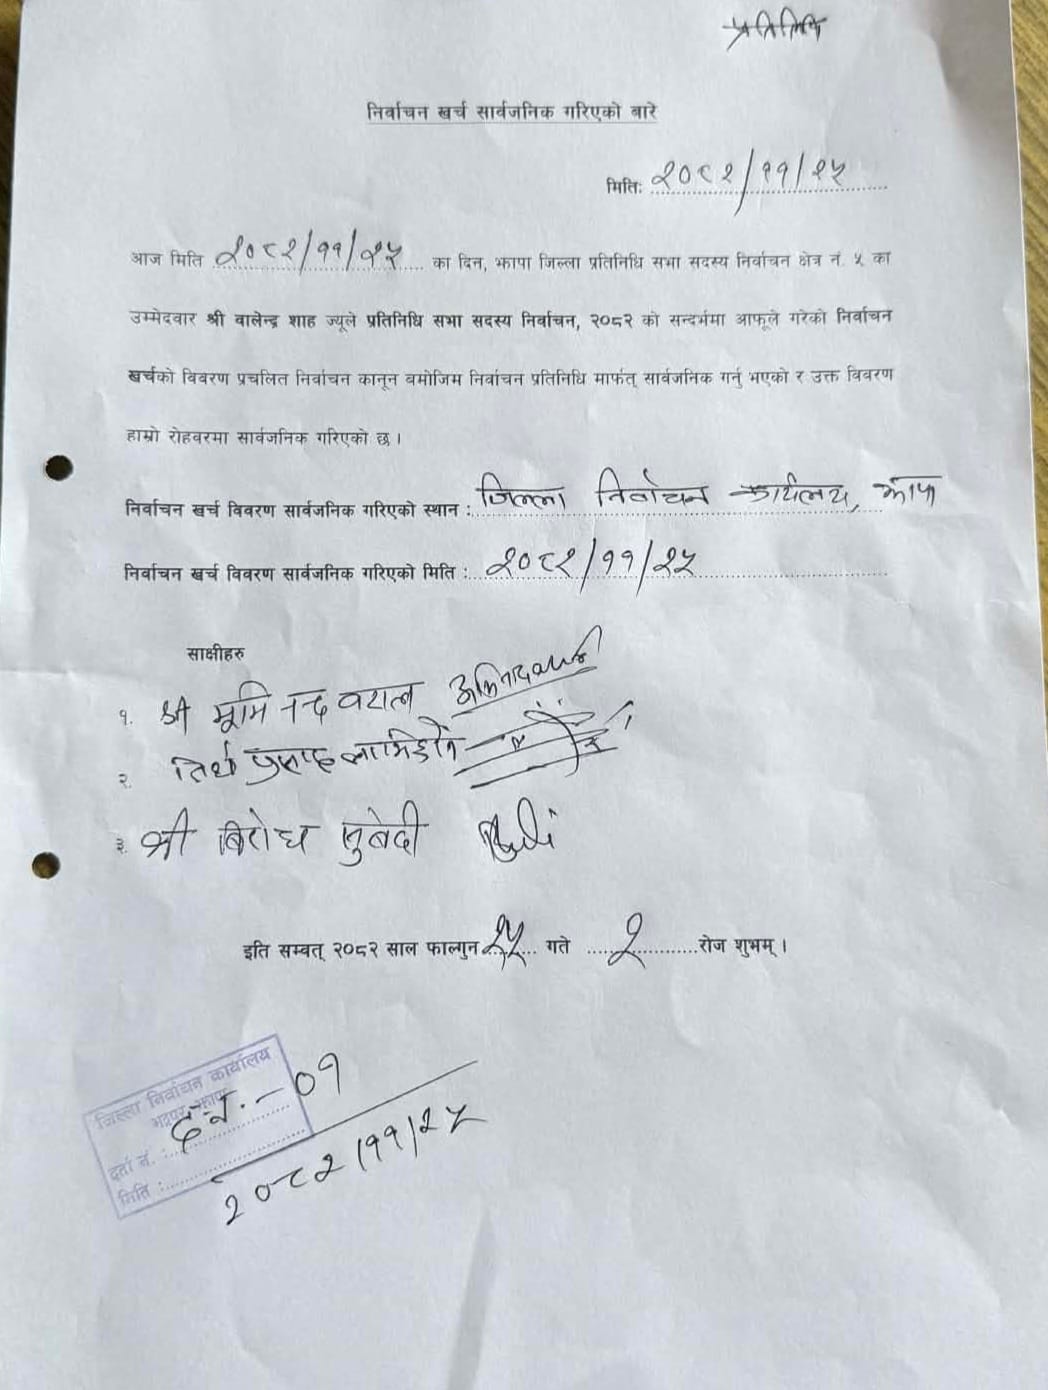 प्रतिलिपि
निर्वाचन खर्च सार्वजनिक गरिएको बारे
मितिः २०८२/११/२५
आज मिति २०८२/११/२५ का दिन, झापा जिल्ला प्रतिनिधि सभा सदस्य निर्वाचन क्षेत्र नं. ५ का
उम्मेदवार श्री वालेन्द्र शाह ज्यूले प्रतिनिधि सभा सदस्य निर्वाचन, २०८२ को सन्दर्भमा आफूले गरेको निर्वाचन
खर्चको विवरण प्रचलित निर्वाचन कानून बमोजिम निर्वाचन प्रतिनिधि मार्फत् सार्वजनिक गर्नु भएको र उक्त विवरण
हाम्रो रोहवरमा सार्वजनिक गरिएको छ ।
निर्वाचन खर्च विवरण सार्वजनिक गरिएको स्थान : जिल्ला निर्वाचन कार्यलय, झापा
निर्वाचन खर्च विवरण सार्वजनिक गरिएको मिति : २०८२/११/२५
साक्षीहरु
१. श्री भूमि
२. तिर्थ प्रसाद
३. श्री बिरोध सुवेदी
इति सम्वत् २०८२ साल फाल्गुन २५ गते २ रोज शुभम् ।
जिल्ला निर्वाचन कार्यालय
भद्रपुर, झापा
दर्ता नं. : द.नं. - ०१
मिति : २०८२/११/२५